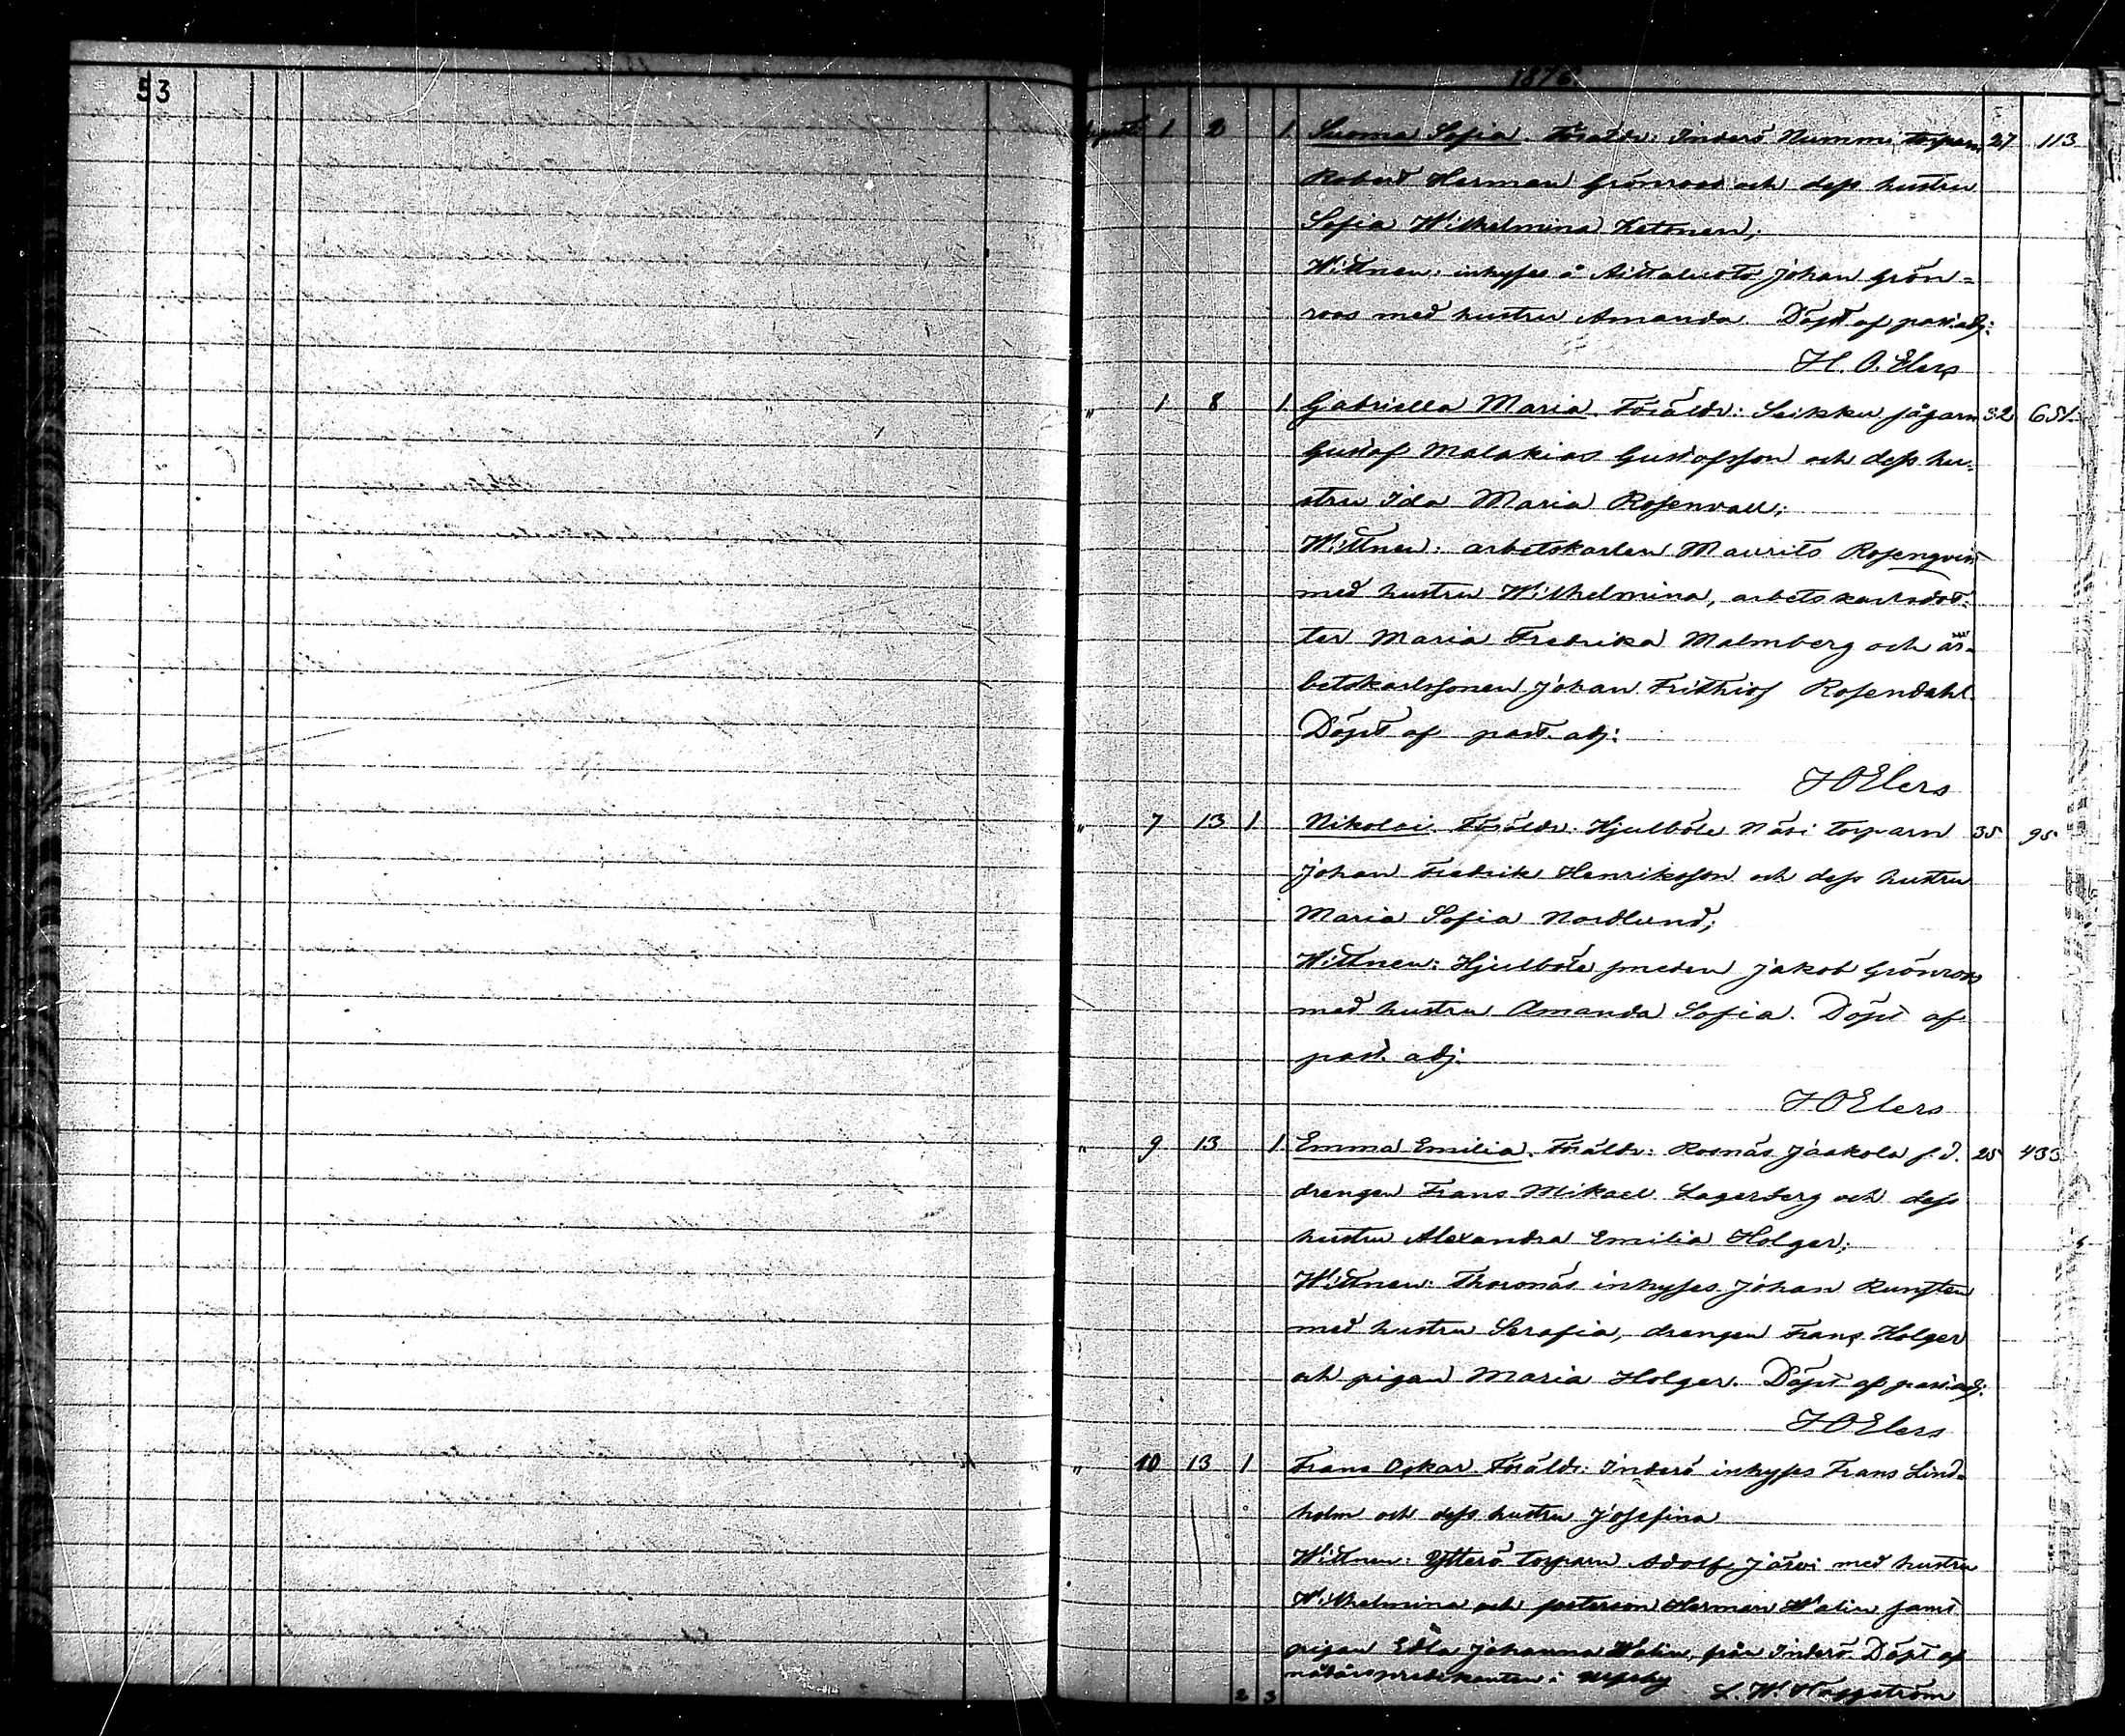 53
1876.
August 1 2 1 Suoma Sofia. Föräldr: Inderö Nummi torparn 27 113
Robert Herman Grönroos och dess hustru
Sofia Wilhelmina Ketonen;
Wittnen: inhyses å Aittaluoto Johan Grön=
roos med hustru Amanda. Döpt af past.adj:
H. O. Elers
" 1 8 1 Gabriella Maria. Föräldr: Seikku sågarn 32 651.
Gustaf Malakias Gustafsson och dess hu-
stru Ida Maria Rosenvall;
Wittnen: arbetskarlen Maurits Rosenqvist
med hustru Wilhelmina, arbetskarlsdot-
ter Maria Fredrika Malmberg och ar-
betskarlssonen Johan Frithiof Rosendahl.
Döpt af past. adj:
HOElers
" 7 13 1 Nikolai. Föräldr: Hjulböle Näsi torparn 35 95
Johan Fredrik Henriksson och dess hustru
Maria Sofia Nordlund;
Wittnen: Hjulböle smeden Jakob Grönroos
med hustru Amanda Sofia. Döpt af
past. adj:
HOElers
" 9 13 1 Emma Emilia. Föräldr: Rosnäs Jaakola f.d. 25 433
drengen Frans Mikael Lagerberg och dess
hustru Alexandra Emilia Holger;
Wittnen: Thorsnäs inhyses Johan Runsten
med hustru Serafia, drengen Frans Holger
och pigan Maria Holger. Döpt af past.adj:
HOElers
" 10 13 1 Frans Oskar. Föräldr: Inderö inhyses Frans Lind-
holm och dess hustru Josefina
Wittnen: Ytterö torparn Adolf Järvi med hustru
Wilhelmina och Herman Walin samt
pigan Edla Johanna Walin, från Inderö. Döpt af
nådårspredikanten i Ulfsby
L. W. Häggström
2 3